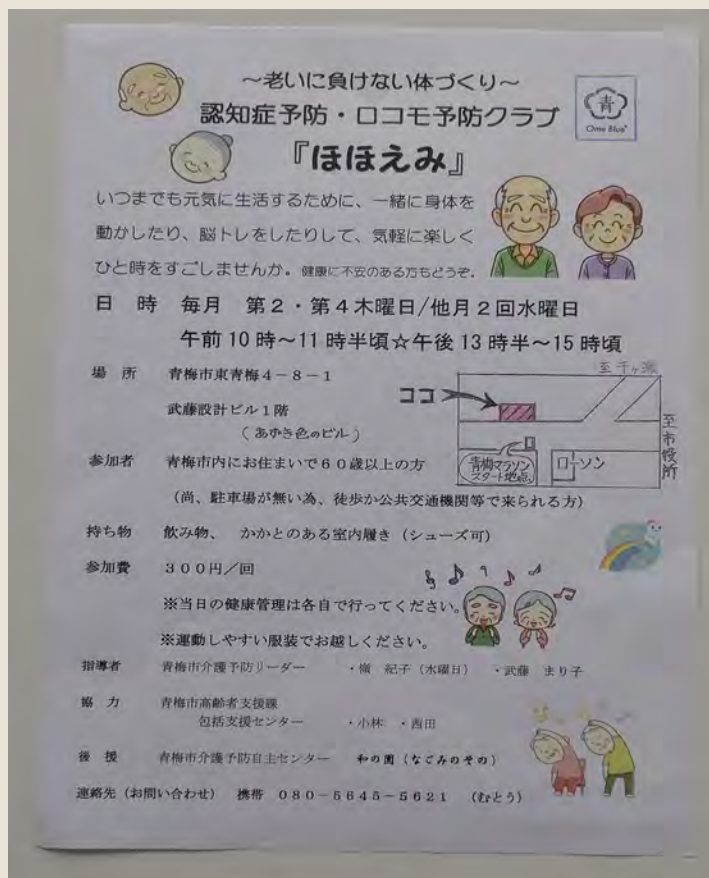 ～老いに負けない体づくり～
認知症予防・ロコモ予防クラブ
『ほほえみ』
青
Ome Blue
いつまでも元気に生活するために、一緒に身体を
動かしたり、脳トレをしたりして、気軽に楽しく
ひと時をすごしませんか。健康に不安のある方もどうぞ。
日　時　毎月　第２・第４木曜日/他月２回水曜日
午前10時～11時半頃☆午後13時半～15時頃
場　所　青梅市東青梅４－８－１
武藤設計ビル１階
（あずき色のビル）
ココ
至千ヶ瀬
至市役所
青梅マラソン
スタート地点
ローソン
参加者　青梅市内にお住まいで６０歳以上の方
（尚、駐車場が無い為、徒歩か公共交通機関等で来られる方）
持ち物　飲み物、　かかとのある室内履き（シューズ可）
参加費　３００円／回
※当日の健康管理は各自で行ってください。
※運動しやすい服装でお越しください。
指導者　青梅市介護予防リーダー　・嶺　紀子（水曜日）　・武藤　まり子
協　力　青梅市高齢者支援課
包括支援センター　・小林　・西田
後　援　青梅市介護予防自主センター　和の園（なごみのその）
連絡先（お問い合わせ）　携帯　０８０－５６４５－５６２１　（むとう）